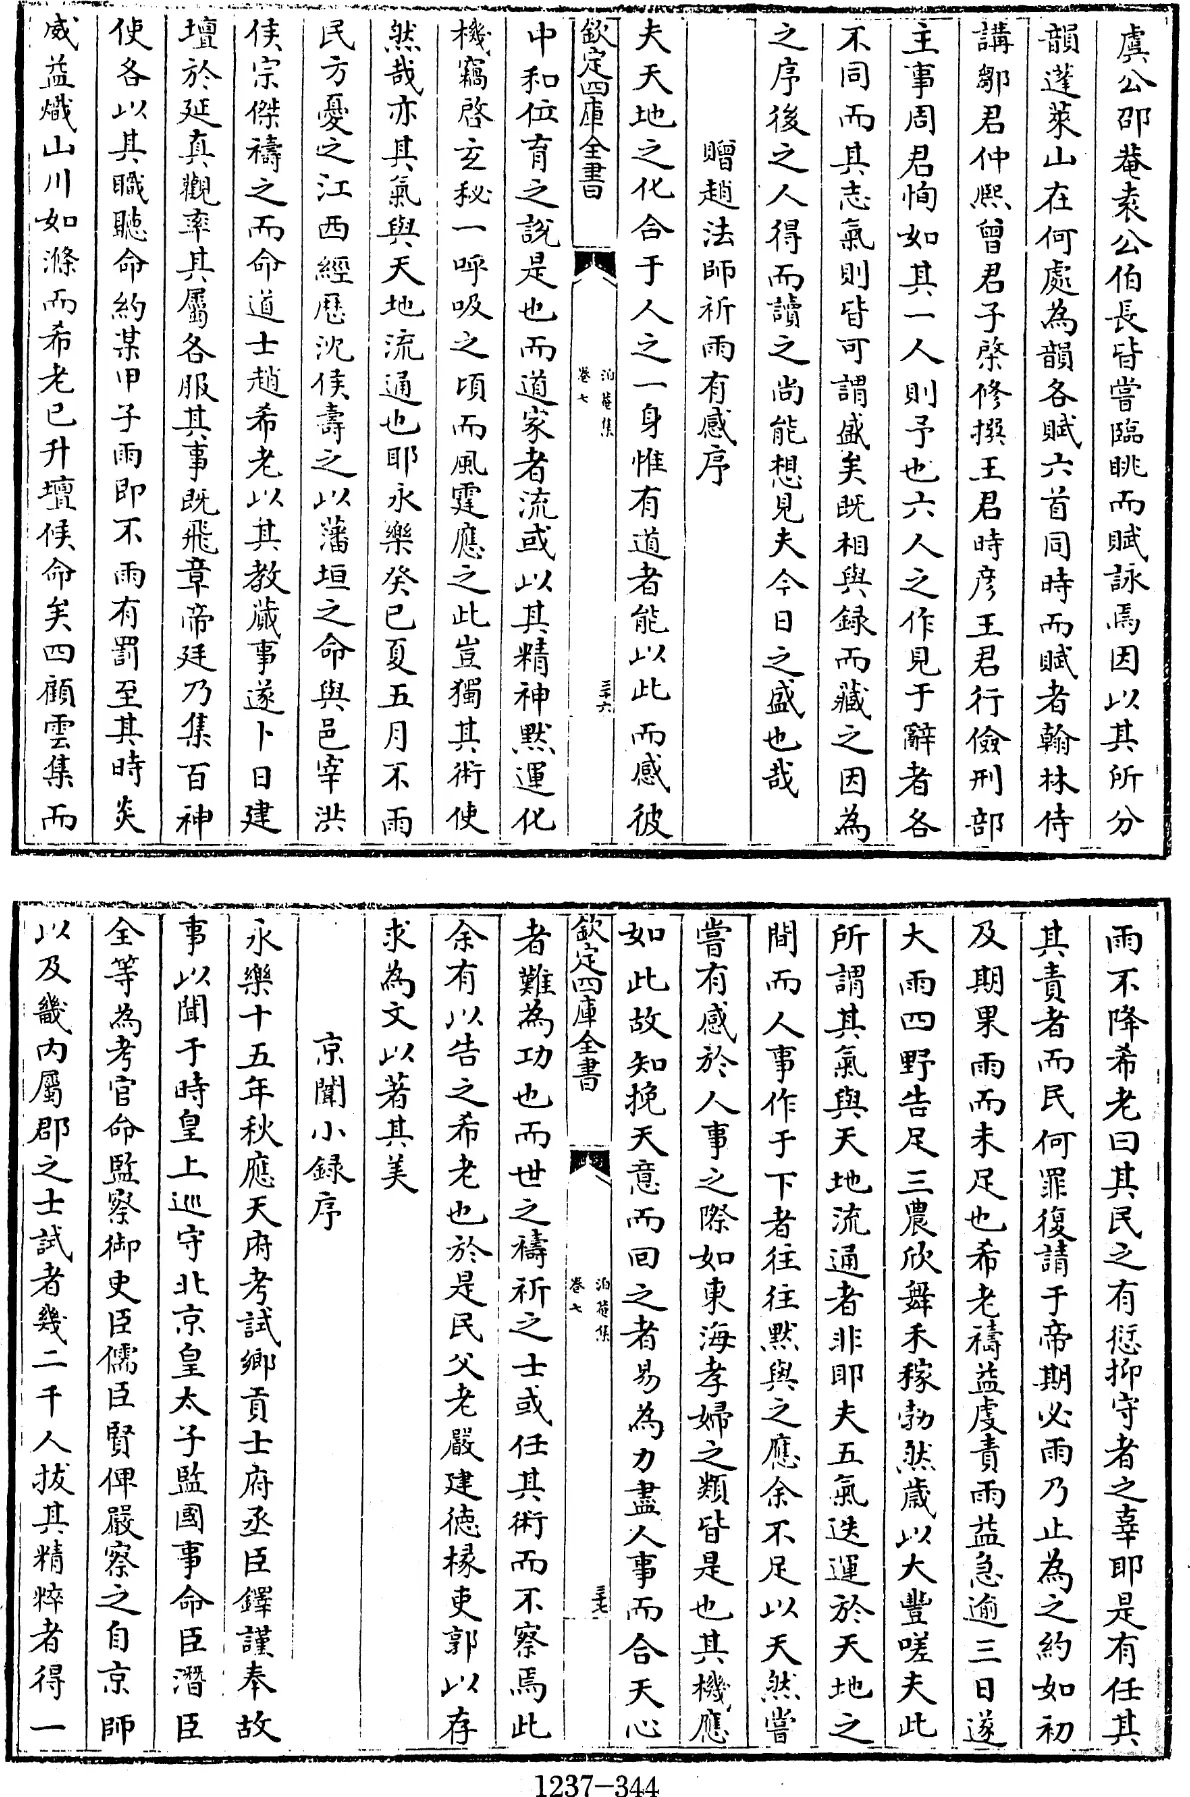 虞公邵菴袁公伯長皆嘗臨眺而賦詠焉因以其所分
韻蓬萊山在何處為韻各賦六首同時而賦者翰林侍
講鄒君仲熈曾君子棨修撰王君時彦王君行儉刑部
主事周君恂如其一人則予也六人之作見于辭者各
不同而其志氣則皆可謂盛矣既相與録而藏之因為
之序後之人得而讀之尚能想見夫今日之盛也哉
贈趙法師祈雨有感序
夫天地之化合于人之一身惟有道者能以此而感彼
欽定四庫全書
泊菴集
卷七
三十六
中和位育之說是也而道家者流或以其精神黙運化
機竊啓玄秘一呼吸之頃而風霆應之此豈獨其術使
然哉亦其氣與天地流通也耶永樂癸巳夏五月不雨
民方憂之江西經歷沈侯壽之以藩垣之命與邑宰洪
侯宗傑禱之而命道士趙希老以其教蕆事遂卜日建
壇於延真觀率其屬各服其事既飛章帝廷乃集百神
使各以其職聽命約某甲子雨即不雨有罰至其時炎
威益熾山川如滌而希老已升壇俟命矣四顧雲集而
雨不降希老曰其民之有愆抑守者之辜耶是有任其
其責者而民何罪復請于帝期必雨乃止為之約如初
及期果雨而未足也希老禱益虔責雨益急逾三日遂
大雨四野告足三農欣舞禾稼勃然歲以大豐嗟夫此
所謂其氣與天地流通者非耶夫五氣迭運於天地之
間而人事作于下者往往黙與之應余不足以天然嘗
嘗有感於人事之際如東海孝婦之類皆是也其機應
如此故知挽天意而回之者易為力盡人事而合天心
欽定四庫全書
泊菴集
卷七
三十七
者難為功也而世之禱祈之士或任其術而不察焉此
余有以告之希老也於是民父老嚴建德掾吏郭以存
求為文以著其美
京闈小録序
永樂十五年秋應天府考試鄉貢士府丞臣鐸謹奉故
事以聞于時皇上巡守北京皇太子監國事命臣潛臣
全等為考官命監察御史臣儒臣賢俾嚴察之自京師
以及畿内屬郡之士試者幾二千人拔其精粹者得一
1237-344